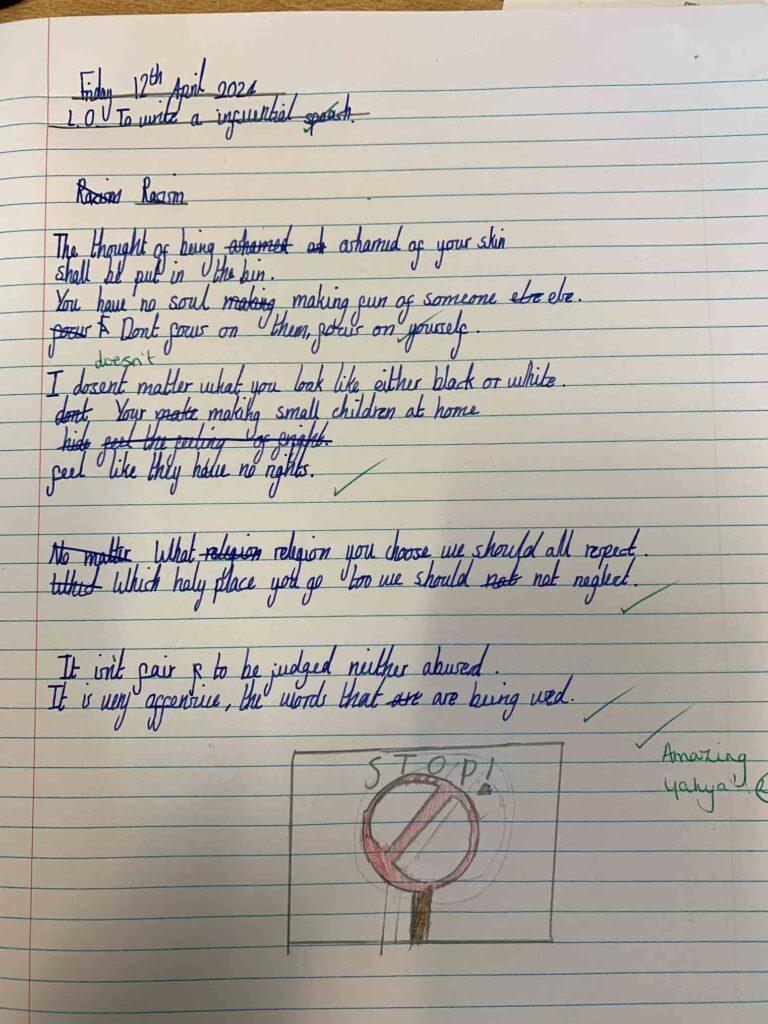 Friday 12th April 2024
L.O To write a infuential speach.
Racism Racism
The thought of being ashamed at ashamed of your skin
shall be put in the bin.
You have no soul making making fun of someone else else.
focus F Dont focus on them, focus on yourself.
doesn't
I dosent matter what you look like either black or white.
dont Your make making small children at home
hide feel the feeling of fright.
feel like they have no rights.
No matter What religion religion you choose we should all respect.
Which holy place you go too we should not not neglect.
It isn't fair to be judged neither abused.
It is very offencive, the words that are are being used.
Amazing
Yahya!
STOP!